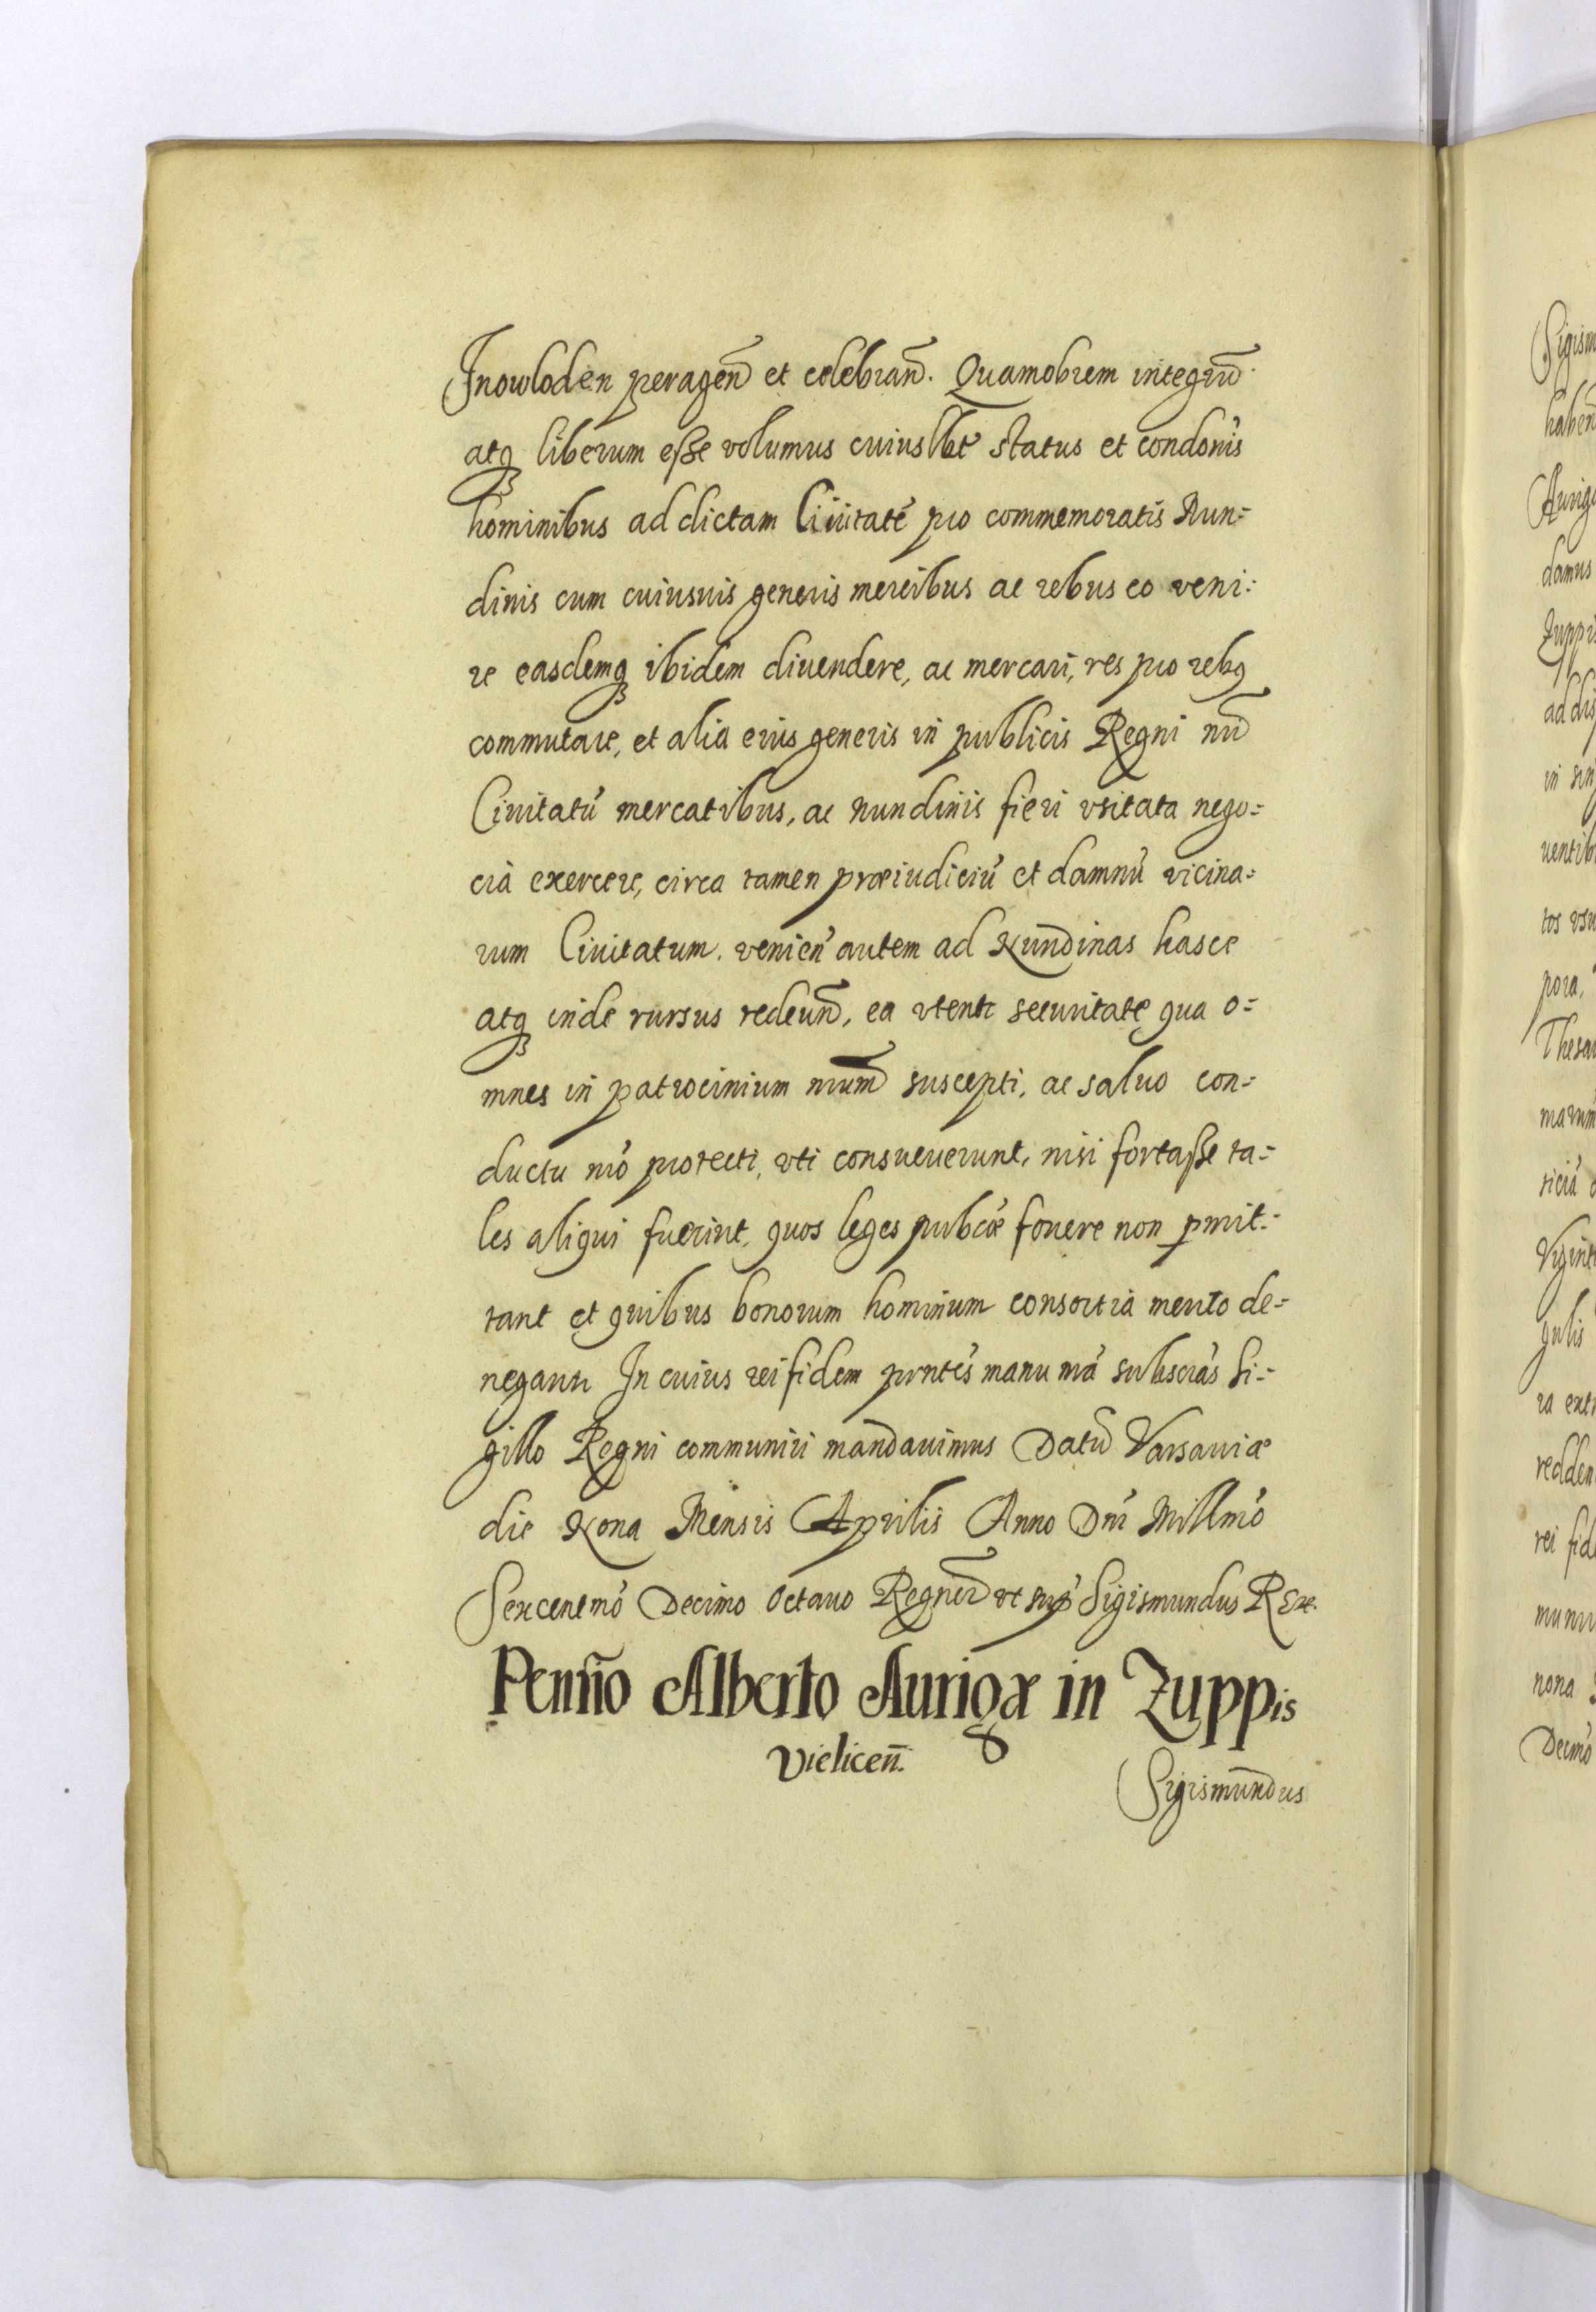 Jnowloden peragen̄ et celebran̄. Quamobrem integrū
atq̨ liberum esse volumus cuiuslbt status et condonis
hominibus ad dictam Ciuitatē pro commemoratis Nun=
dinis cum cuiusuis generis mercibus ac rebus eo veni=
re easdemq̨ ibidem diuendere, ac mercari, res pro rebq
commutare, et alia eius generis in publicis Regni nri
Ciuitatū mercatibus, ac nundinis fieri vsitata nego=
cia exercere, circa tamen præiudiciū et damnū vicina=
rum Ciuitatum. venien̄ autem ad Nundinas hasce
atq̨ inde rursus redeun̄, ea vtentr securitate qua o=
mnes in patrocinium nrum suscepti, ac saluo con=
ductu nrō protecti, vti consueuerunt, nisi fortasse ta=
les aliqui fuerint, quos leges pubcæ fouere non pmit=
tant et quibus bonorum hominum consortia merito de=
negantr In cuius rei fidem prntēs manu nrā subscrās Si=
gillo Regni communiri mandauimus Datū Varsauiæ
die Nona Mensis Aprilis Anno Dni Millmō
Sexcentmō Decimo Octauo Regnor̄ vt sup̄ Sigismundus REx.
Pennio Alberto Aurigæ in Zuppis
Vielicen̄.
Sigismundus
Sigism
haben
Aurig
damus
Zuppis
ad dis
in sin
uentib
tos vsu
pora,
Thesau
marum
ticiā
Vigint
gulis
ra ext
redden
rei fid
muniri
nona
Decimō